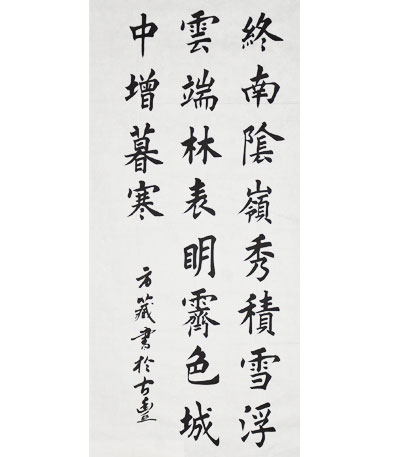 終南陰嶺秀積雪浮
雲端林表明霽色城
中增暮寒
方箴書於古豐